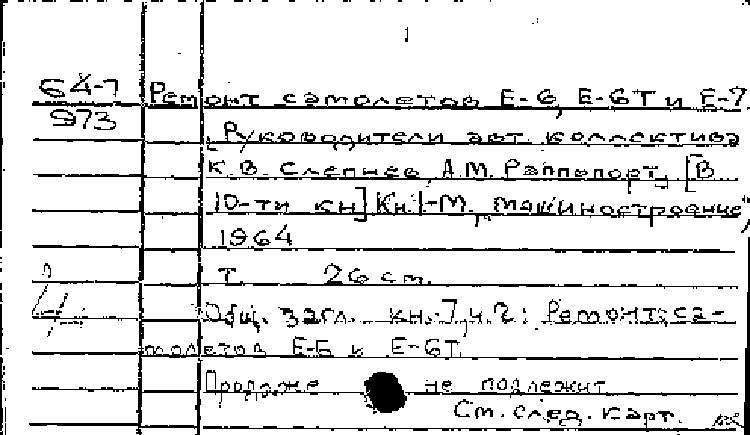 64-7
973
Ремонт самолетов Е-6, Е-6Т и Е-7
[Руководители авт. коллектива
К.В. Слепнев, А.М. Раппопорт], [В
10-ти кн] Кн. 1- М., "Машиностроение",
1964
Т. 26 см.
Общ. загл. кн. 7, ч. 2: Ремонт са-
молетов Е-6 и Е-6Т.
Продаже не подлежит
См. след. карт.